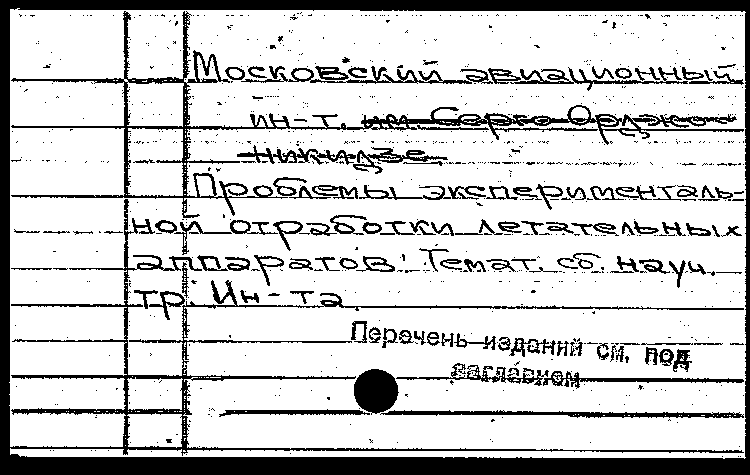 Московский авиационный
ин-т. им. Серго Орджо-
никидзе.
Проблемы эксперименталь-
ной отработки летательных
аппаратов: Темат. сб. науч.
тр. Ин-та
Перечень изданий см. под
заглавием